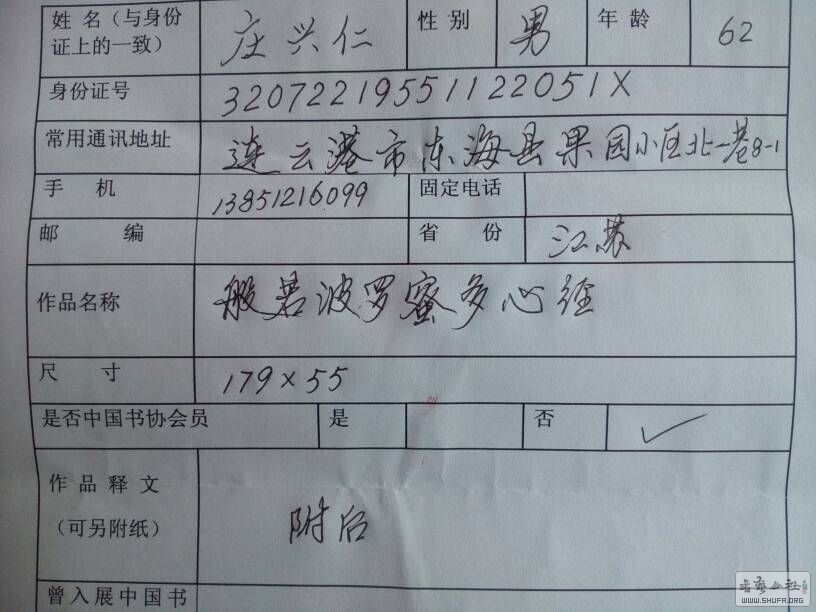 姓 名（与身份 庄兴仁 性 别 男 年 龄 62
证上的一致）
身份证号 32072219551122051X
常用通讯地址 连云港市东海县果园小区北一巷8-1
手 机 13851216099 固定电话
邮 编 省 份 江苏
作品名称 般若波罗蜜多心经
尺 寸 179×55
是否中国书协会员 是 否 ✓
作 品 释 文
（可另附纸） 附后
曾入展中国书
书艺公社
WWW.SHUFA.ORG